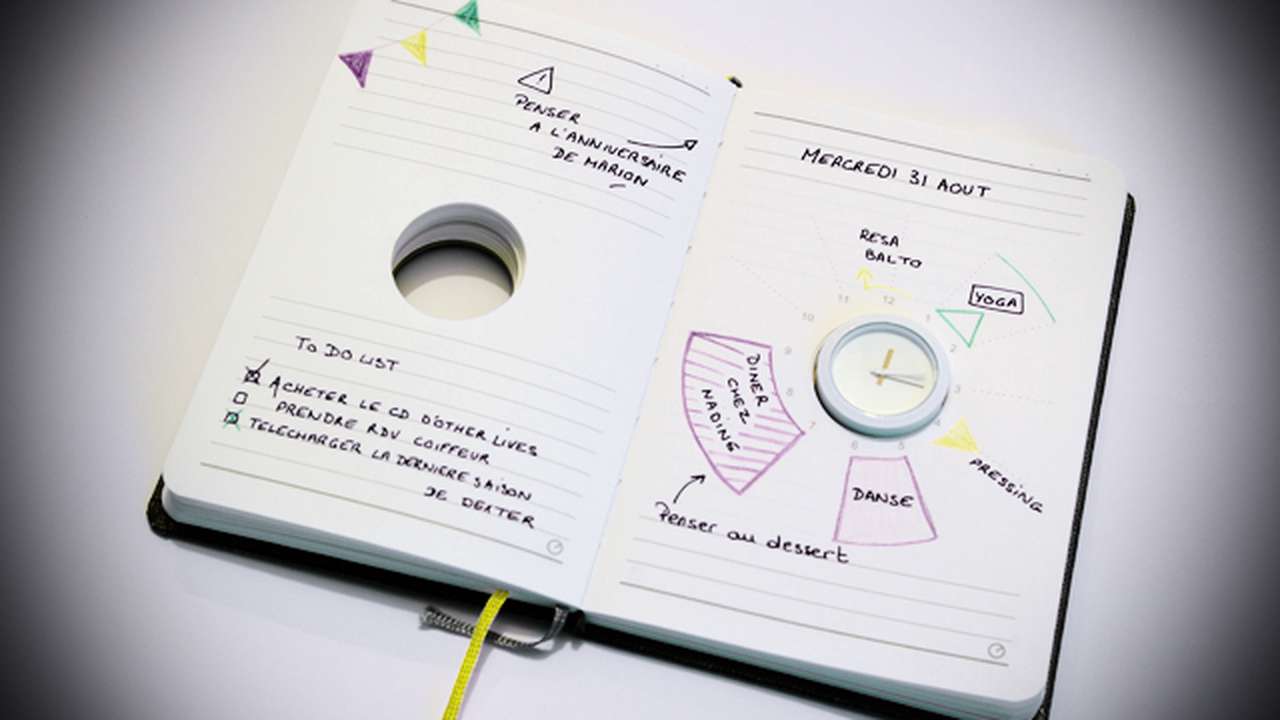 !
PENSER
A L'ANNIVERSAIRE
DE MARION
TO DO LIST
ACHETER LE CD D'OTHER LIVES
PRENDRE RDV COIFFEUR
TELECHARGER LA DERNIERE SAISON
DE DEXTER
MERCREDI 31 AOUT
RESA
BALTO
YOGA
11
12
1
10
2
9
3
8
4
7
6
5
DINER
CHEZ
NADINE
PRESSING
DANSE
Penser au dessert